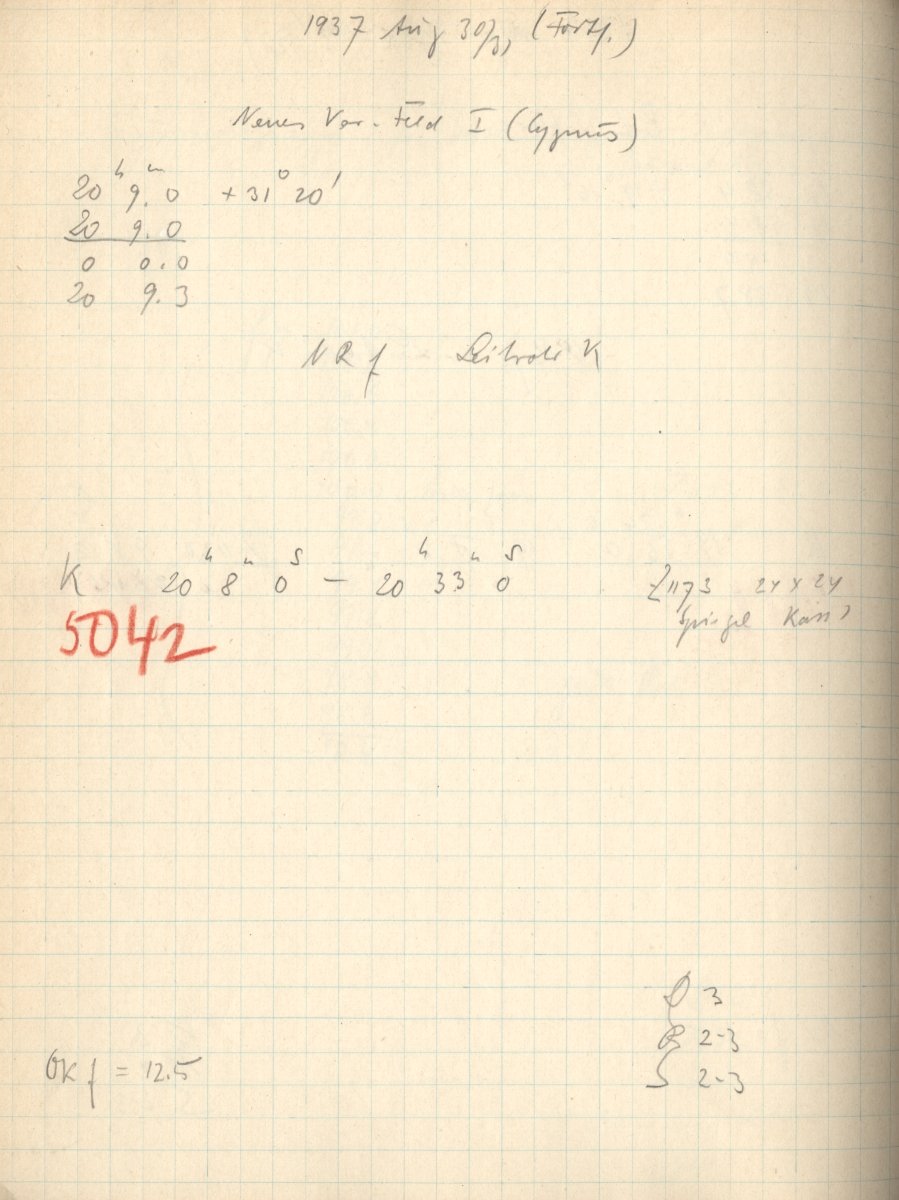 1937 Aug 30/31 (Forts.)
Neues Var. Feld I (Cygnus)
20ʰ 9.ᵐ0 +31° 20'
20 9.0
0 0.0
20 9.3
NRf Leitrohr K
K 20ʰ 8ᵐ 0ˢ — 20ʰ 33ᵐ 0ˢ
1173 24 x 24
5042
Spiegel Kass
3
R 2-3
OKf = 12.5
S 2-3